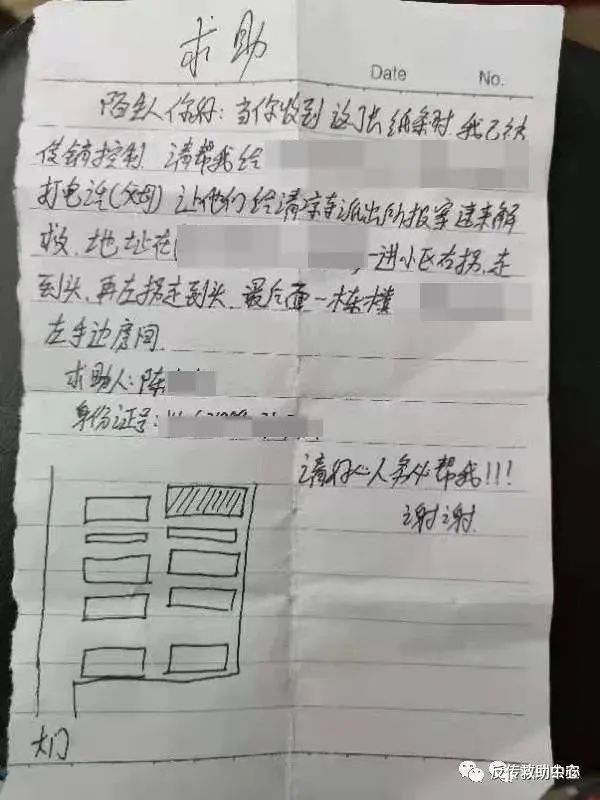 求助
Date No.
陌生人你好:当你收到这张纸条时 我已被
传销控制 请帮我给
打电话(父母) 让他们给清凉寺派出所报案速来解
救.地址在 ,一进小区右拐.走
到头.再左拐走到头.最后面一栋楼
左手边房间
求助人:陈
身份证号:
请好心人务必帮我!!!
谢谢
大门
反传救助中心